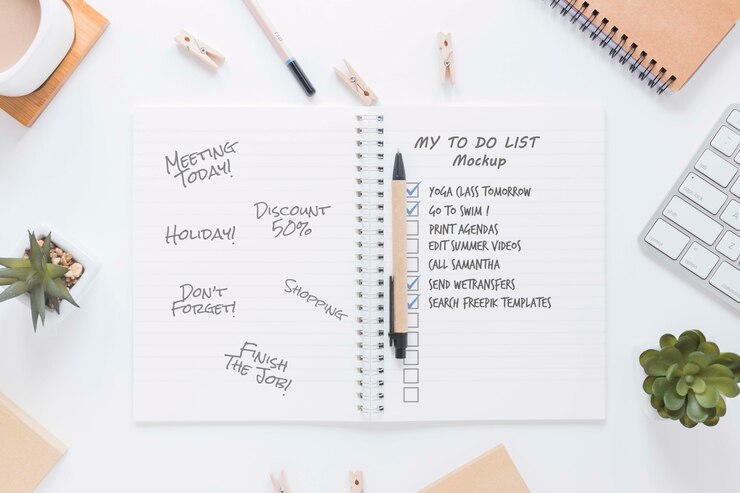 MEETING
TODAY!
DISCOUNT
50%
HOLIDAY!
DON'T
FORGET!
SHOPPING
FINISH
THE JOB!
MY TO DO LIST
Mockup
YOGA CLASS TOMORROW
GO TO SWIM !
PRINT AGENDAS
EDIT SUMMER VIDEOS
CALL SAMANTHA
SEND WETRANSFERS
SEARCH FREEPIK TEMPLATES